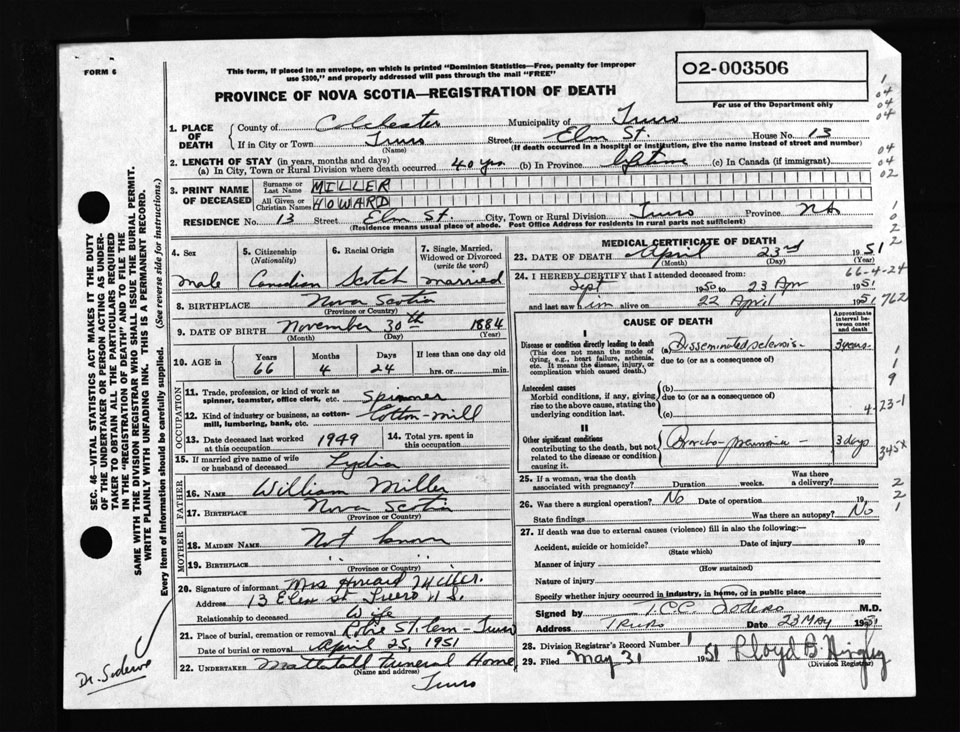 FORM 6
This form, if placed in an envelope, on which is printed "Dominion Statistics—Free, penalty for improper
use $300," and properly addressed will pass through the mail "FREE"
O2-003506
PROVINCE OF NOVA SCOTIA—REGISTRATION OF DEATH
For use of the Department only
1. PLACE OF DEATH
County of Colchester Municipality of Truro
If in City or Town Truro Street Elm St. House No. 13
(Name) (If death occurred in a hospital or institution, give the name instead of street and number)
2. LENGTH OF STAY (in years, months and days)
(a) In City, Town or Rural Division where death occurred 40 yrs (b) In Province Lifetime (c) In Canada (if immigrant)
3. PRINT NAME OF DECEASED
Surname or Last Name MILLER
All Given or Christian Names HOWARD
RESIDENCE No. 13 Street Elm St. City, Town or Rural Division Truro Province NS
(Residence means usual place of abode. Post Office Address for residents in rural parts not sufficient)
4. Sex male
5. Citizenship (Nationality) Canadian
6. Racial Origin Scotch
7. Single, Married, Widowed or Divorced (write the word) married
8. BIRTHPLACE Nova Scotia
(Province or Country)
9. DATE OF BIRTH November 30th 1884
(Month) (Day) (Year)
10. AGE in Years 66 Months 4 Days 24 If less than one day old hrs. or min.
OCCUPATION
11. Trade, profession, or kind of work as spinner, teamster, office clerk, etc. Spinner
12. Kind of industry or business, as cotton-mill, lumbering, bank, etc. Cotton-mill
13. Date deceased last worked at this occupation 1949
14. Total yrs. spent in this occupation
15. If married give name of wife or husband of deceased Lydia
FATHER
16. NAME William Miller
17. BIRTHPLACE Nova Scotia
(Province or Country)
MOTHER
18. MAIDEN NAME Not known
19. BIRTHPLACE
(Province or Country)
20. Signature of informant Mrs Howard Miller.
Address 13 Elm st Truro N S.
Relationship to deceased Wife
21. Place of burial, cremation or removal Robie St. Cem - Truro
Date of burial or removal April 25, 1951
22. UNDERTAKER Mattatall Funeral Home,
(Name and address)
Truro
MEDICAL CERTIFICATE OF DEATH
23. DATE OF DEATH April 23rd 1951
(Month) (Day) (Year)
66-4-24
24. I HEREBY CERTIFY that I attended deceased from:
Sept 1950 to 23 Apr 1951
and last saw him alive on 22 April 1951
762
CAUSE OF DEATH
Approximate interval between onset and death
I
Disease or condition directly leading to death
(This does not mean the mode of dying, e.g., heart failure, asthenia, etc. It means the disease, injury, or complication which caused death.)
(a) Disseminated sclerosis - 3 years.
due to (or as a consequence of)
Antecedent causes
Morbid conditions, if any, giving rise to the above cause, stating the underlying condition last.
(b)
due to (or as a consequence of)
(c)
4-23-1
II
Other significant conditions
contributing to the death, but not related to the disease or condition causing it.
Broncho-pneumonia - 3 days
345X
25. If a woman, was the death associated with pregnancy? Duration weeks. Was there a delivery?
26. Was there a surgical operation? No Date of operation 19
State findings Was there an autopsy? No
27. If death was due to external causes (violence) fill in also the following:—
Accident, suicide or homicide? Date of injury 19
(State which)
Manner of injury
(How sustained)
Nature of injury
Specify whether injury occurred in industry, in home, or in public place
Signed by T.C.C. Sodero M.D.
Address TRURO Date 23 MAY 1951
28. Division Registrar's Record Number 1
29. Filed May 31 1951 Lloyd B.
(Division Registrar)
SEC. 46—VITAL STATISTICS ACT MAKES IT THE DUTY
OF THE UNDERTAKER OR PERSON ACTING AS UNDERTAKER
TO OBTAIN ALL THE PARTICULARS REQUIRED
IN THE "REGISTRATION OF DEATH" AND TO FILE THE
SAME WITH THE DIVISION REGISTRAR WHO SHALL ISSUE THE BURIAL PERMIT.
WRITE PLAINLY WITH UNFADING INK. THIS IS A PERMANENT RECORD.
Every item of information should be carefully supplied. (See reverse side for instructions.)
Dr. Sodero
1
04
04
04
04
04
02
1
0
2
2
1
1
9
2
2
1